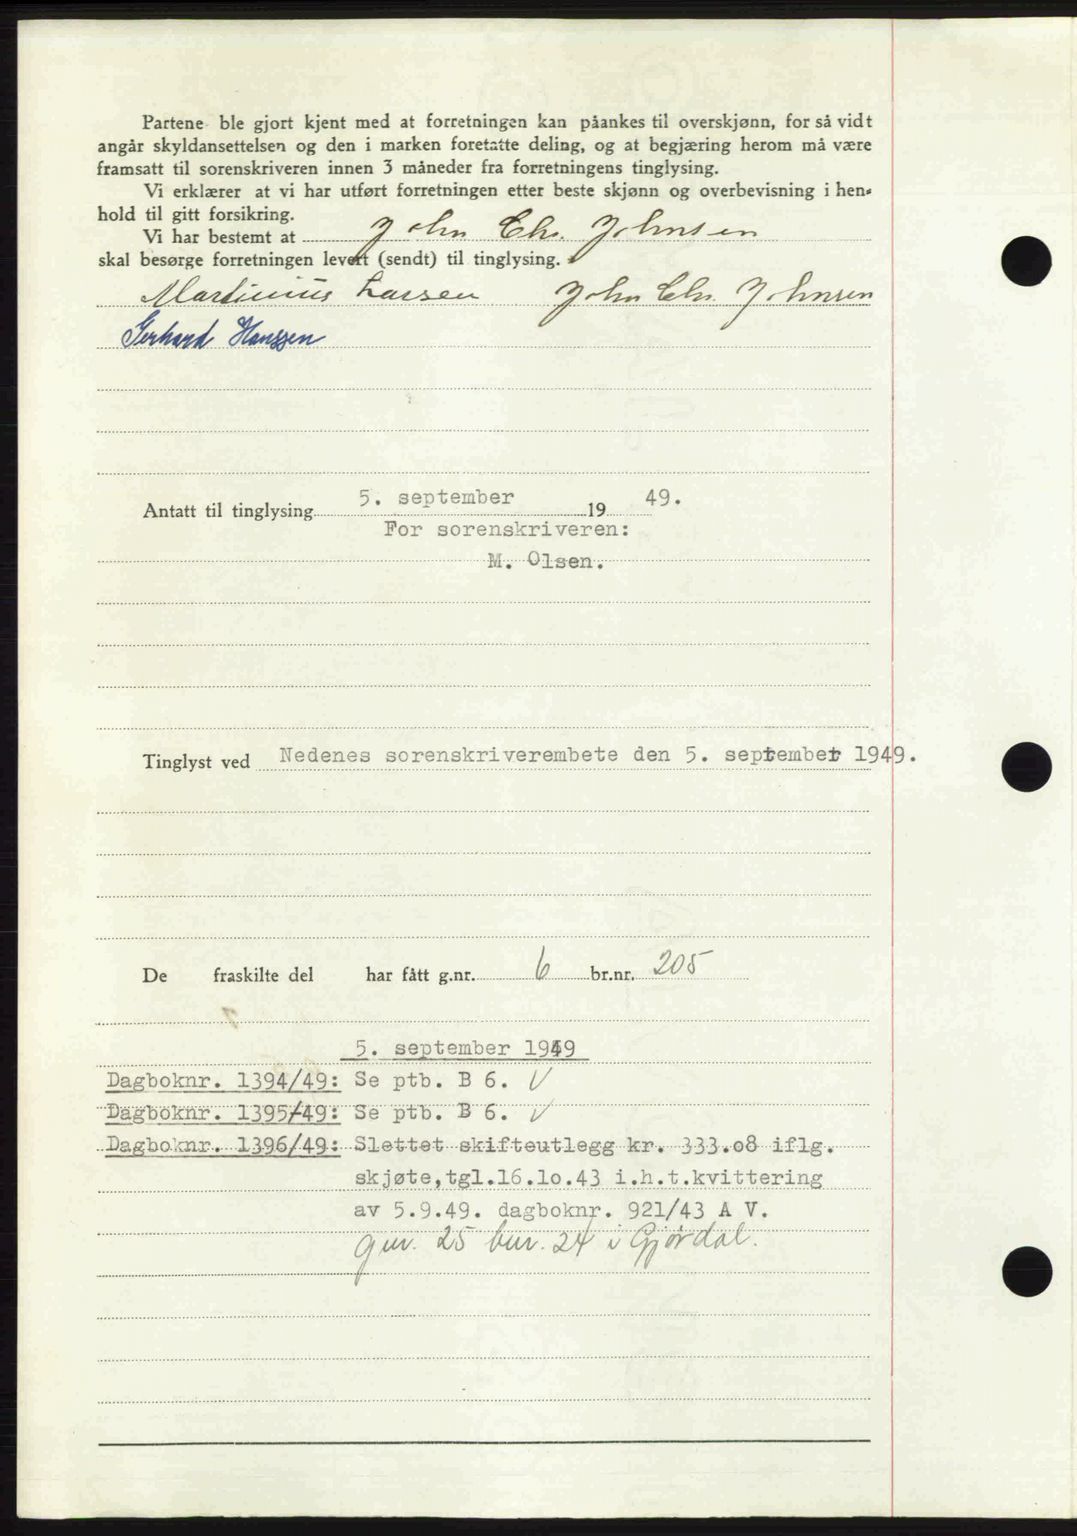 Partene ble gjort kjent med at forretningen kan påankes til overskjønn, for så vidt
angår skyldansettelsen og den i marken foretatte deling, og at begjæring herom må være
framsatt til sorenskriveren innen 3 måneder fra forretningens tinglysing.
Vi erklærer at vi har utført forretningen etter beste skjønn og overbevisning i hen-
hold til gitt forsikring.
Vi har bestemt at John Chr. Johnsen
skal besørge forretningen levert (sendt) til tinglysing.
Martinius Larsen John Chr. Johnsen
Gerhard Hanssen
Antatt til tinglysing 5. september 19 49.
For sorenskriveren:
M. Olsen.
Tinglyst ved Nedenes sorenskriverembete den 5. september 1949.
De fraskilte del har fått g.nr. 6 br.nr. 205
5. september 1949
Dagboknr. 1394/49: Se ptb. B 6. V
Dagboknr. 1395/49: Se ptb. B 6. V
Dagboknr. 1396/49: Slettet skifteutlegg kr. 333.o8 iflg.
skjøte,tgl.16.1o.43 i.h.t.kvittering
av 5.9.49. dagboknr. 921/43 A V.
gnr. 25 bnr. 24 i Gjørdal.